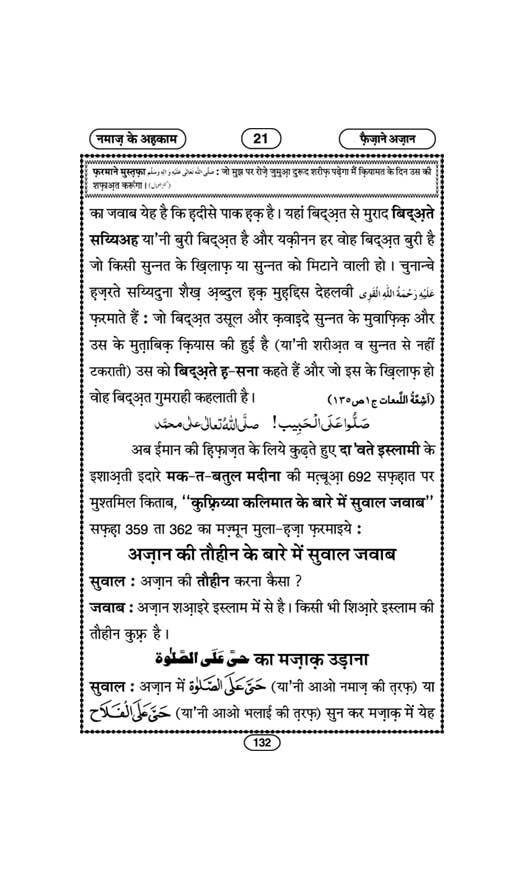 नमाज़ के अह़काम
21
फ़ैज़ाने अज़ान
फ़रमाने मुस्त़फ़ा صلى الله تعالى عليه واله وسلم : जो मुझ पर रोज़े जुमुआ़ दुरूद शरीफ़ पढ़ेगा मैं क़ियामत के दिन उस की
शफ़ाअ़त करूंगा ।
का जवाब येह है कि ह़दीसे पाक ह़क़ है । यहां बिद्अ़त से मुराद बिद्अ़ते
सय्यिअह या'नी बुरी बिद्अ़त है और यक़ीनन हर वोह बिद्अ़त बुरी है
जो किसी सुन्नत के ख़िलाफ़ या सुन्नत को मिटाने वाली हो । चुनान्चे
ह़ज़रते सय्यिदुना शैख़ अ़ब्दुल ह़क़ मुह़द्दिस देहलवी عَلَيْهِ رَحْمَةُ اللّٰهِ الْقَوِى
फ़रमाते हैं : जो बिद्अ़त उसूल और क़वाइ़दे सुन्नत के मुवाफ़िक़ और
उस के मुत़ाबिक़ क़ियास की हुई है (या'नी शरीअ़त व सुन्नत से नहीं
टकराती) उस को बिद्अ़ते ह़-सना कहते हैं और जो इस के ख़िलाफ़ हो
वोह बिद्अ़त गुमराही कहलाती है । (اَشِعَّةُ اللَّمعات ج١ص١٣٥)
صَلُّوا عَلَى الْحَبِيب! صلَّى اللهُ تعالٰى على محتَّد
अब ईमान की ह़िफ़ाज़त के लिये कुढ़ते हुए दा'वते इस्लामी के
इशाअ़ती इदारे मक-त-बतुल मदीना की मत़्बूआ़ 692 सफ़ह़ात पर
मुश्तमिल किताब, “कुफ़्रिय्या कलिमात के बारे में सुवाल जवाब”
सफ़ह़ा 359 ता 362 का मज़्मून मुला-ह़ज़ा फ़रमाइये :
अज़ान की तौहीन के बारे में सुवाल जवाब
सुवाल : अज़ान की तौहीन करना कैसा ?
जवाब : अज़ान शआ़इरे इस्लाम में से है । किसी भी शिआ़रे इस्लाम की
तौहीन कुफ़्र है ।
حىَّ عَلَى الصَّلٰوة का मज़ाक़ उड़ाना
सुवाल : अज़ान में حَىَّ عَلَى الصَّلٰوة (या'नी आओ नमाज़ की त़रफ़) या
حَىَّ عَلَى الْفَلَاح (या'नी आओ भलाई की त़रफ़) सुन कर मज़ाक़ में येह
132